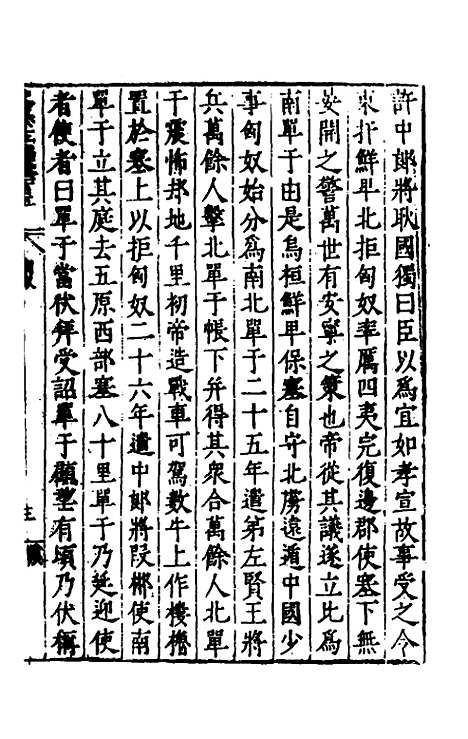 許中郎將耿國獨曰臣以爲宜如孝宣故事受之令
東扞鮮卑北拒匈奴率厲四夷完復邊郡使塞下無
晏開之警萬世有安寧之策也帝從其議遂立比爲
南單于由是烏桓鮮卑保塞自守北虜遠遁中國少
事匈奴始分爲南北單于二十五年遣第左賢王將
兵萬餘人擊北單于帳下并得其衆合萬餘人北單
于震怖却地千里初帝造戰車可駕數牛上作樓櫓
置於塞上以拒匈奴二十六年遣中郎將段郴使南
單于立其庭去五原西部塞八十里單于乃延迎使
者使者曰單于當伏拜受詔單于顧望有頃乃伏稱